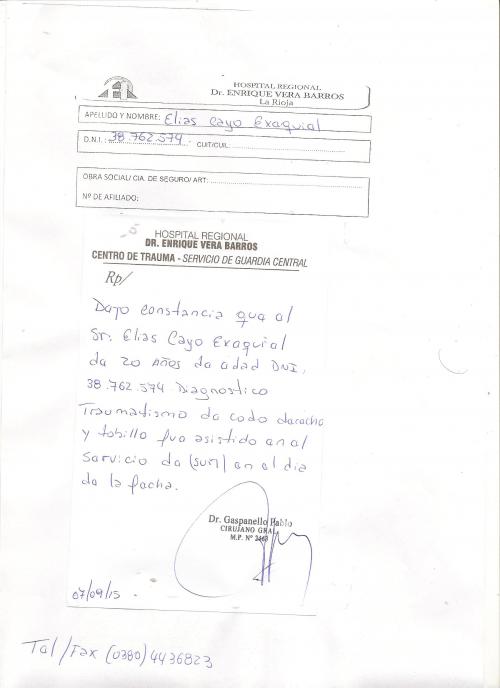 HOSPITAL REGIONAL
Dr. ENRIQUE VERA BARROS
La Rioja
APELLIDO Y NOMBRE: Elias Cayo Exaquial
D.N.I.: 38.762.574. CUIT/CUIL:
OBRA SOCIAL/ CIA. DE SEGURO/ ART:
Nº DE AFILIADO:
HOSPITAL REGIONAL
DR. ENRIQUE VERA BARROS
CENTRO DE TRAUMA - SERVICIO DE GUARDIA CENTRAL
Rp/
Dajo constancia qua al
Sr. Elias Cayo Exaquial
da 20 Años da adad DNI.
38.762.574 Diagnostico
Traumatismo da codo daracho
y tobillo fua asistido an al
Sarvicio da (SUM) an al dia
da la facha.
Dr. Gaspanello Pablo
CIRUJANO GRAL.
M.P. Nº
07/09/15
Tal/Fax (0380) 4436823